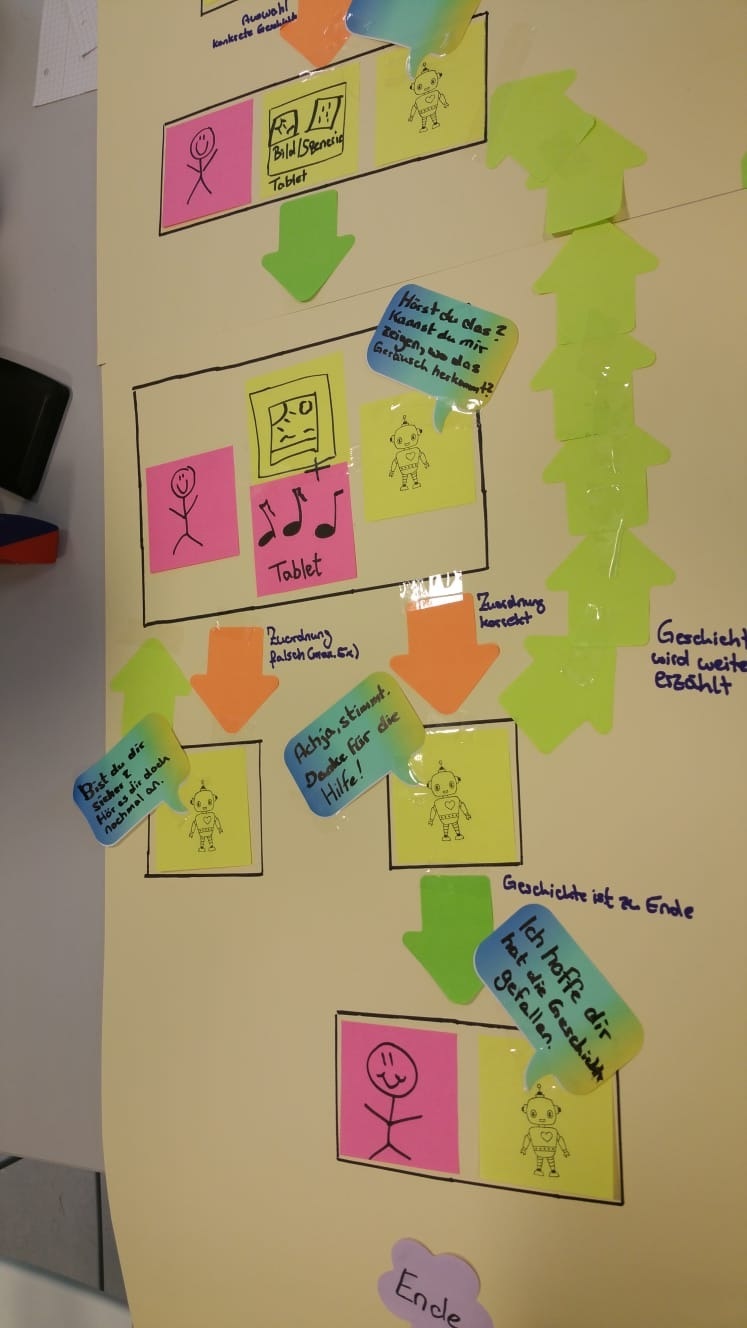 Auswahl
konkrete Geschichte
Bild/Szenerie
Tablet
Hörst du das?
Kannst du mir
zeigen, wo das
Geräusch herkommt?
+
Tablet
Zuordnung
falsch (max. 3x)
Zuordnung
korrekt
Geschicht
wird weite
erzählt
Bist du dir
sicher?
Hör es dir doch
nochmal an.
Achja, stimmt.
Danke für die
Hilfe!
Geschichte ist zu Ende
Ich hoffe dir
hat die Geschichte
gefallen.
Ende